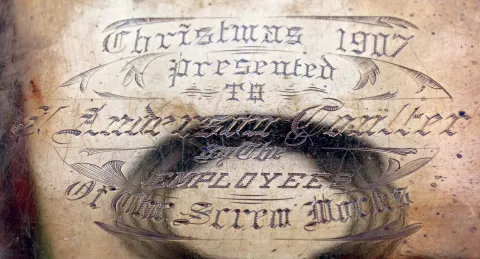 Christmas 1907
presented
TO
Anderson
By The
EMPLOYEES
Of The Screw Works